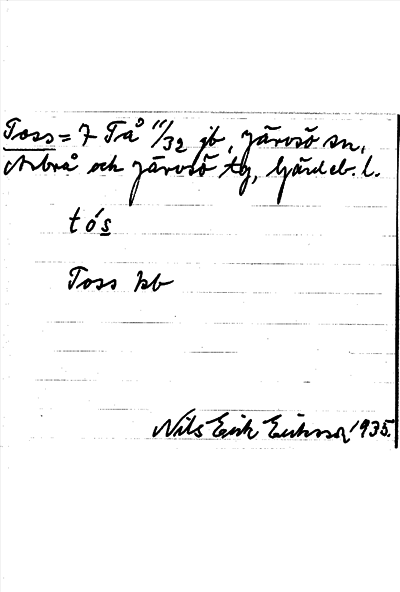 Toss = 7 Tå 11/32 jb, Järvsö sn,
Arbrå och Järvsö tg, Gävleb. l.
t ó s
Toss kb
Nils Erik Eriksson 1935.